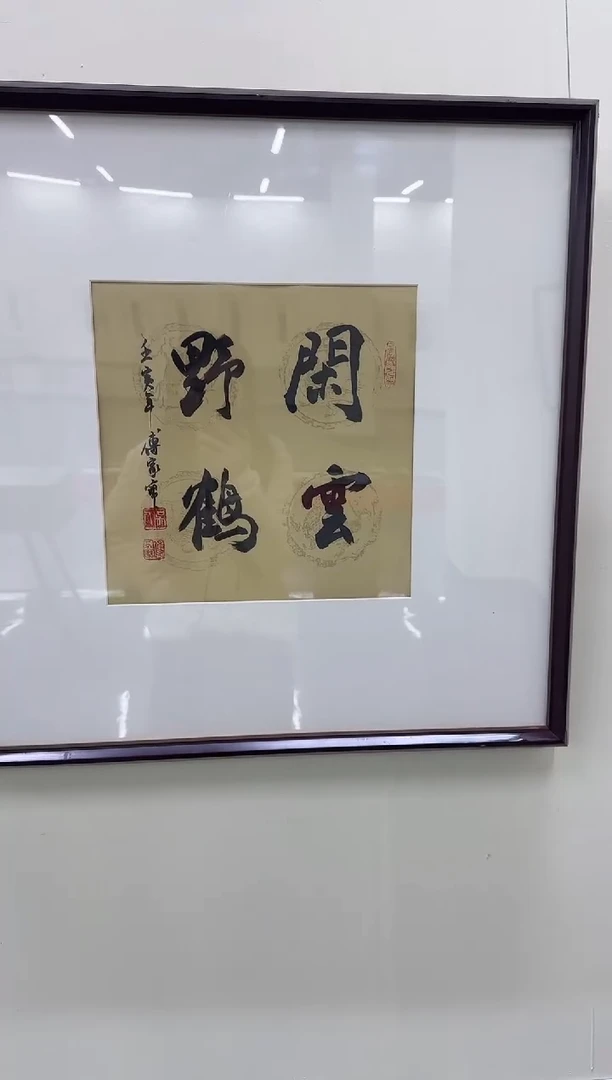 閑雲
野鶴
壬寅年傅家寶